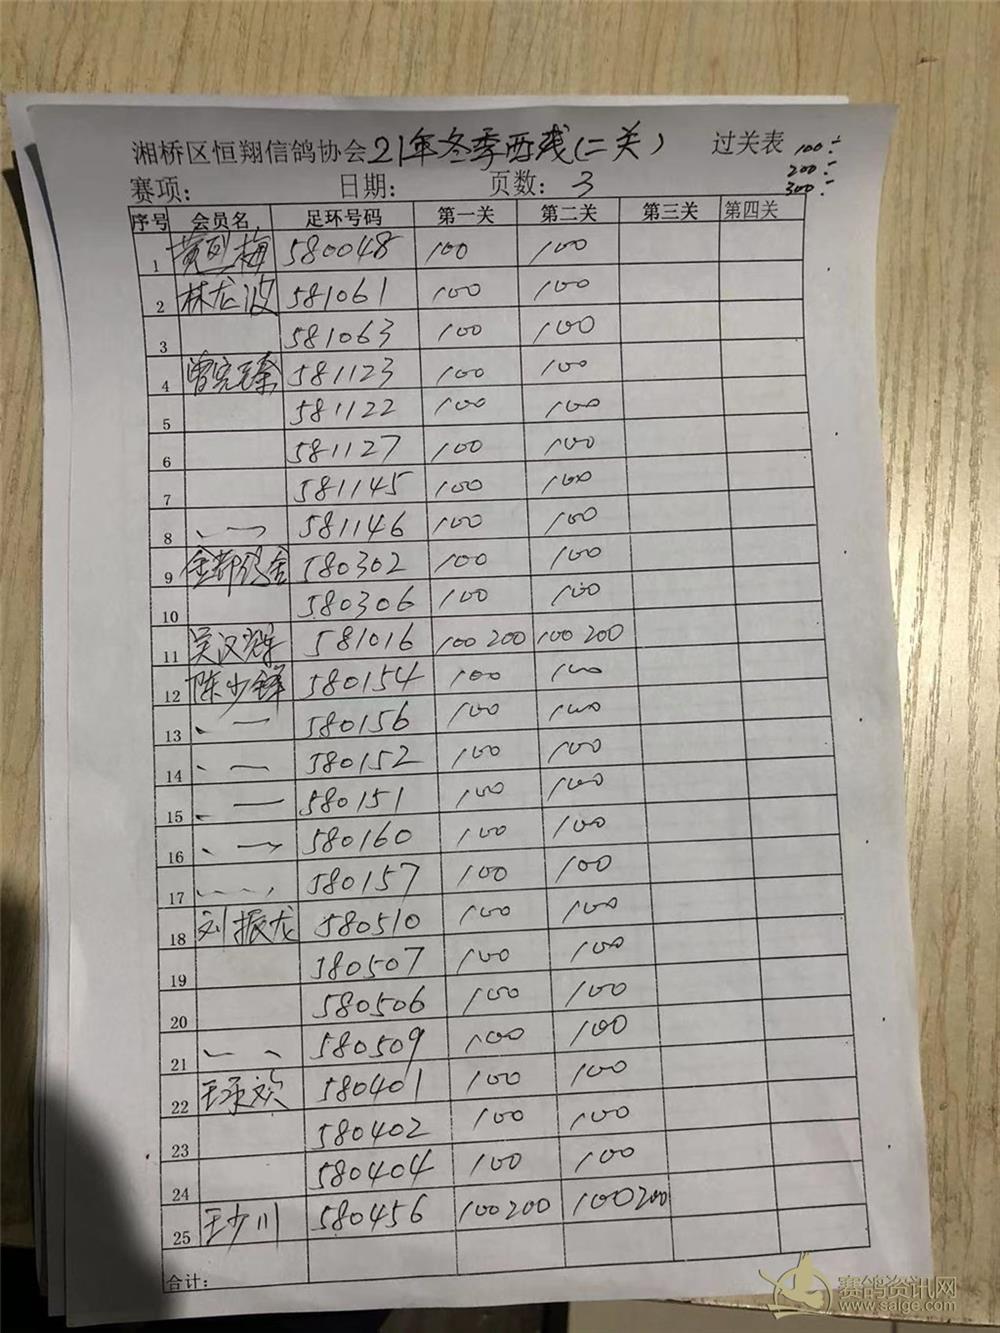 湘桥区恒翔信鸽协会21年冬季西线(二关) 过关表 100:
200:
赛项: 日期: 页数: 3 300:
序号 会员名 足环号码 第一关 第二关 第三关 第四关
1 黄烈梅 580048 100 100
2 林龙波 581061 100 100
3 581063 100 100
4 581123 100 100
5 581122 100 100
6 581127 100 100
7 581145 100 100
8 581146 100 100
9 580302 100 100
10 580306 100 100
11 吴汉辉 581016 100 200 100 200
12 陈少锋 580154 100 100
13 580156 100 100
14 580152 100 100
15 580151 100 100
16 580160 100 100
17 580157 100 100
18 刘振龙 580510 100 100
19 580507 100 100
20 580506 100 100
21 580509 100 100
22 王永欢 580401 100 100
23 580402 100 100
24 580404 100 100
25 王少川 580456 100 200 100 200
合计:
赛鸽资讯网
www.saige.com